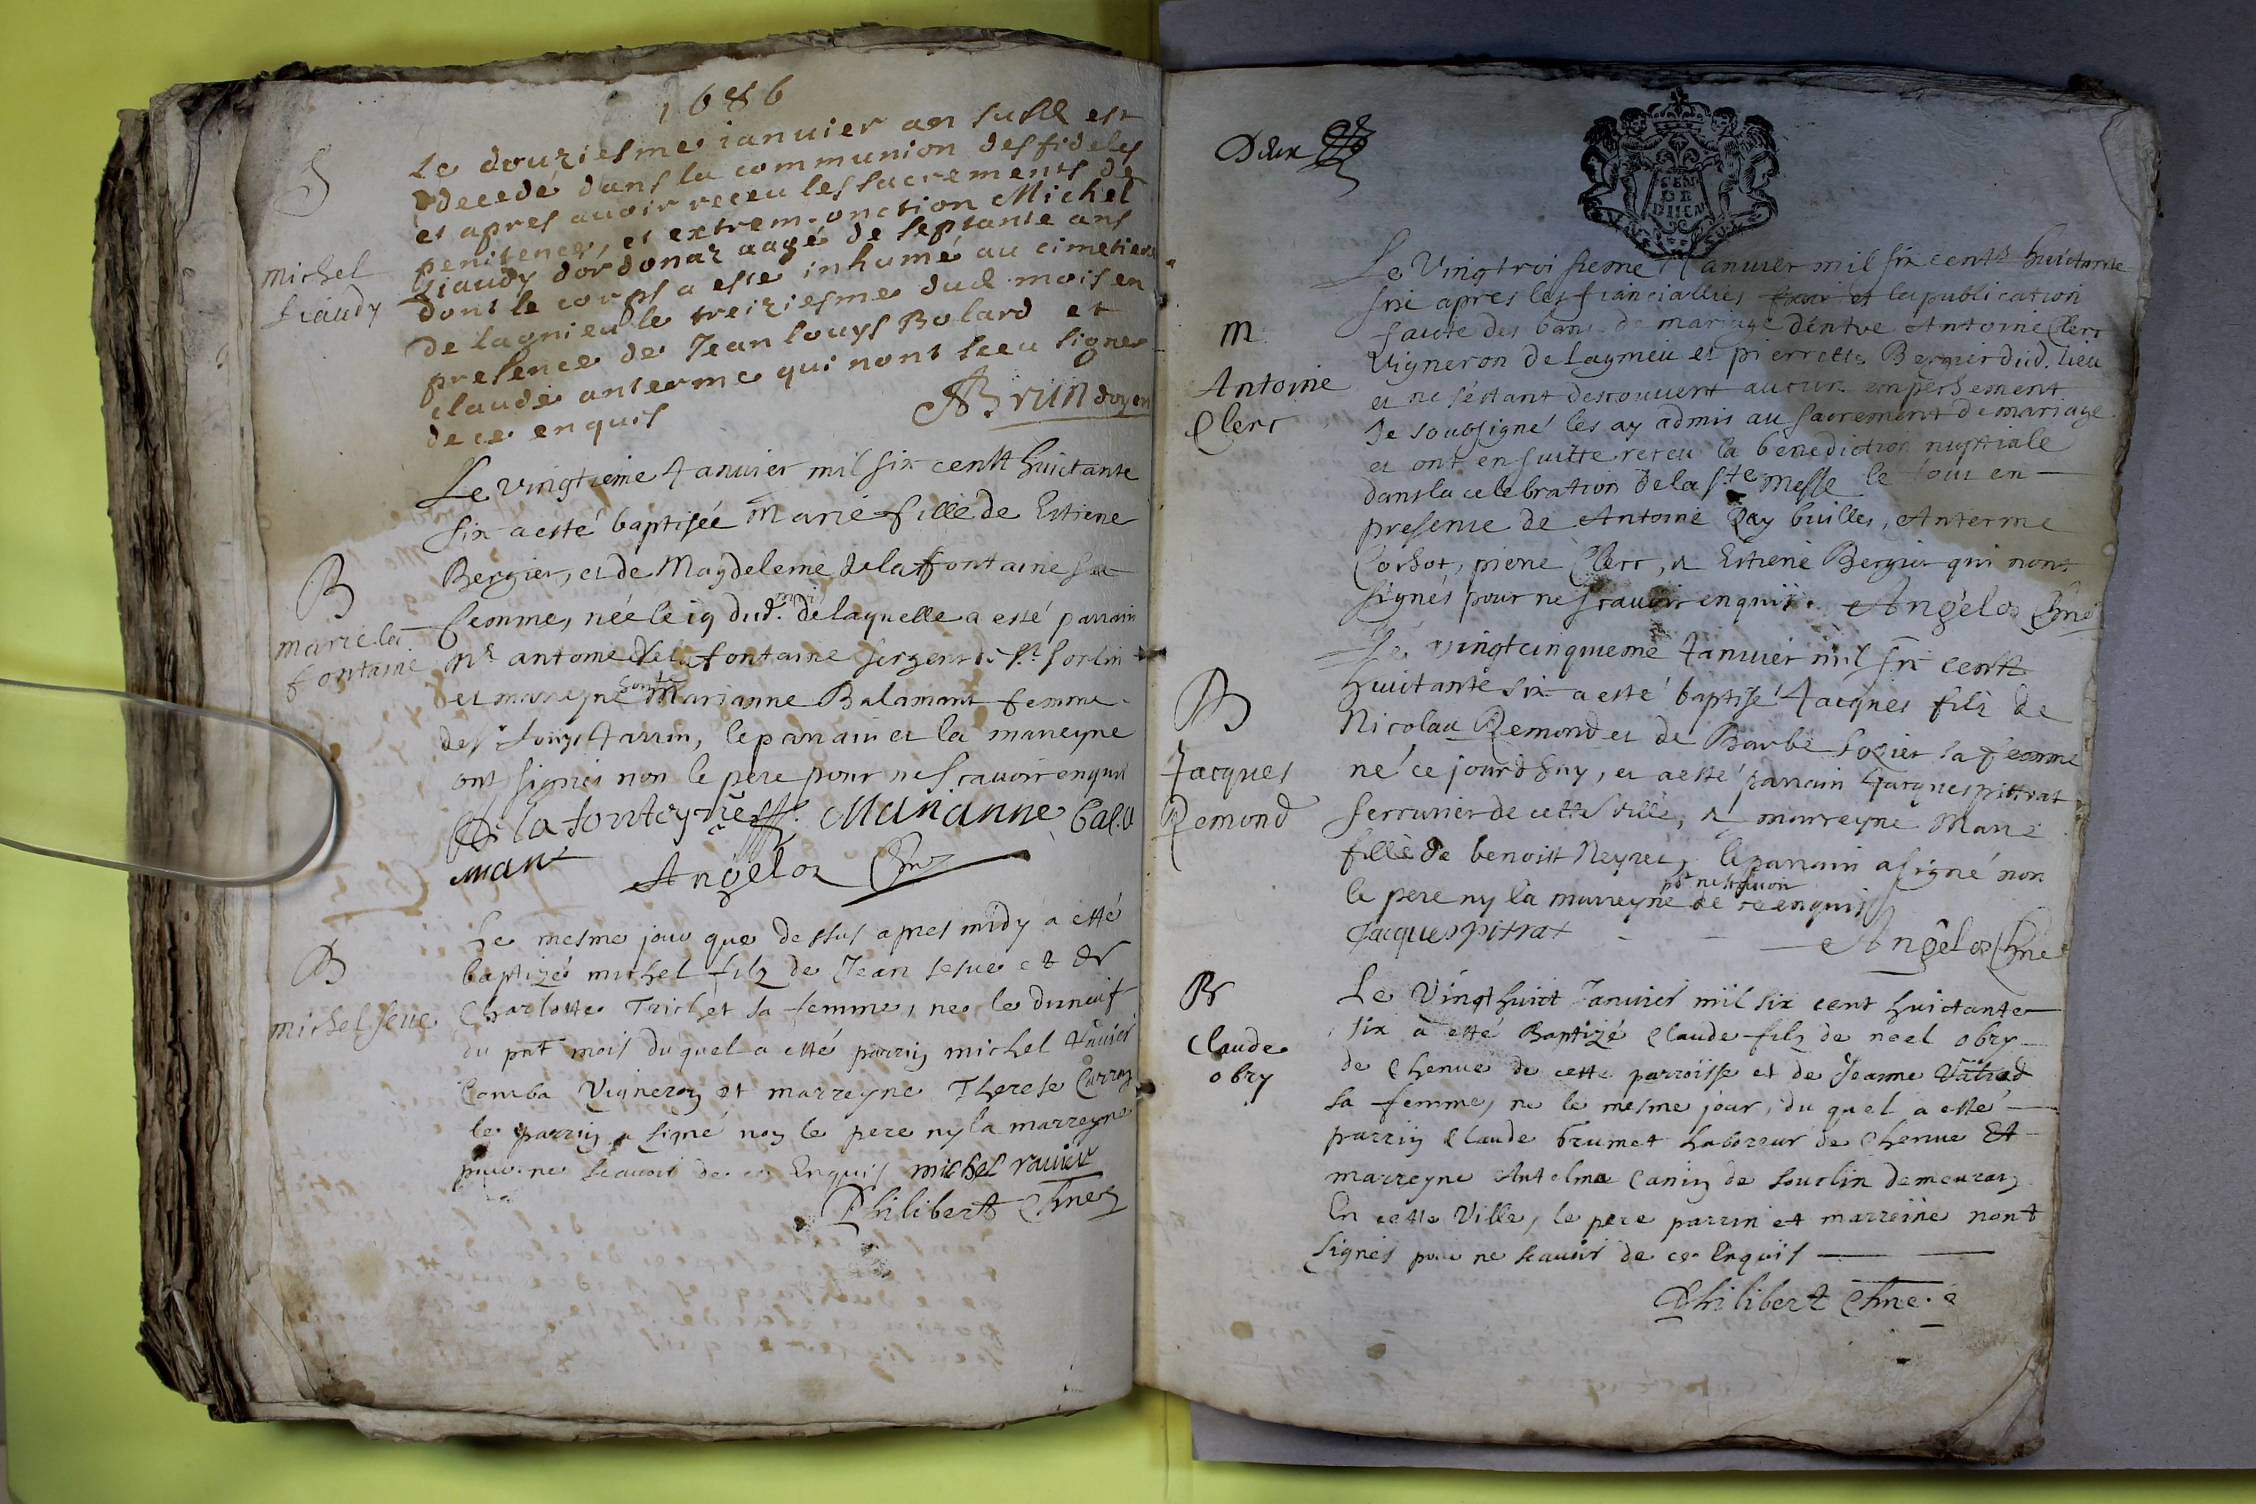 1686
S
Le douziesme ianvier an susd est
decedé dans la communion des fideles
et apres auoir receu les sacrements de
penitence, et extrem-onction Michel
Liaudy dordonaz aagé de septante ans
dont le corps a este inhumé au cimetiere
de lagnieu le treiziesme dud mois en
presence de Jean louys Bolard et
claude anterme qui nont sceu signer
de ce enquis
Michel
Liaudy
Brun doyen
Le vingtieme Januier mil six centz huictante
six a esté baptisée Marie fille de Estiene
B
Bergier, et de Magdeleine delaffontaine sa
femme, née le 19 dud. mois de laquelle a esté parrain
marie la
fontaine
Mr antoine dela fontaine sergent de St Sorlin
et marreyne honte Marianne Balamant femme
de sr Louys Jarrin, le parrain et la marreyne
ont signés non le pere pour ne scauoir enquis
De la fonteyne Marianne bala
mant
Angelot Chne
Le mesme jour que dessus apres midy a esté
B
baptizé michel filz de Jean seue et de
michel seue
Charlotte Trichet sa femme, ne le dixneuf
du pnt mois duquel a esté parrin michel Rauier
Comba Vigneron et marreyne Therese Carron
le parrin a signé non le pere ny la marreyne
pour ne scauoir de ce Enquis michel rauier
Philibert Chne
Deux
GEN
DE
DIION
Le Vingtroisieme Januier mil six centz huictante
six apres les fiancialles et la publication
faicte des bans de mariage d'entre Antoine Clerc
M
Antoine
Clerc
vigneron de Lagnieu et pierrette Bergier dud. lieu
et ne s'estant descouuert aucun empeschement
Je soubsigné les ay admis au sacrement de mariage
et ont ensuitte receu la benediction nuptiale
dans la celebration de la Ste Messe le tout en
presence de Antoine Ray builles, Anterme
Corbot, piere Clerc, & Estiene Bergier qui nont
signés pour ne scauoir enquis. Angelot Chne
Le vingtcinquieme Januier mil six centz
huictante six a esté baptisé Jacques filz de
B
Jacques
Remond
Nicolau Remond et de Barbe Sozier sa femme
né ce jourdhuy, et a esté parrain Jacques pittrat
serrurier de cette ville, & marreyne Marie
fille de benoist Neyret, le parrain a signé non
le pere ny la marreyne pr ne scauoir de ce enquis
Jacques pitrat
Angelot Chne
B
Claude
obry
Le Vingthuict Januier mil six cent huictante
six a esté Baptizé Claude filz de noel obry
de Chenue de cette parroisse et de Jeanne
sa femme, ne le mesme jour, du quel a esté
parrin Claude brumet laboreur de Chenue Et
marreyne Antelma Canin de Sourlin demeurant
En cette Ville, le pere parrin et marreine nont
signés pour ne scauoir de ce Enquis
Philibert Chne